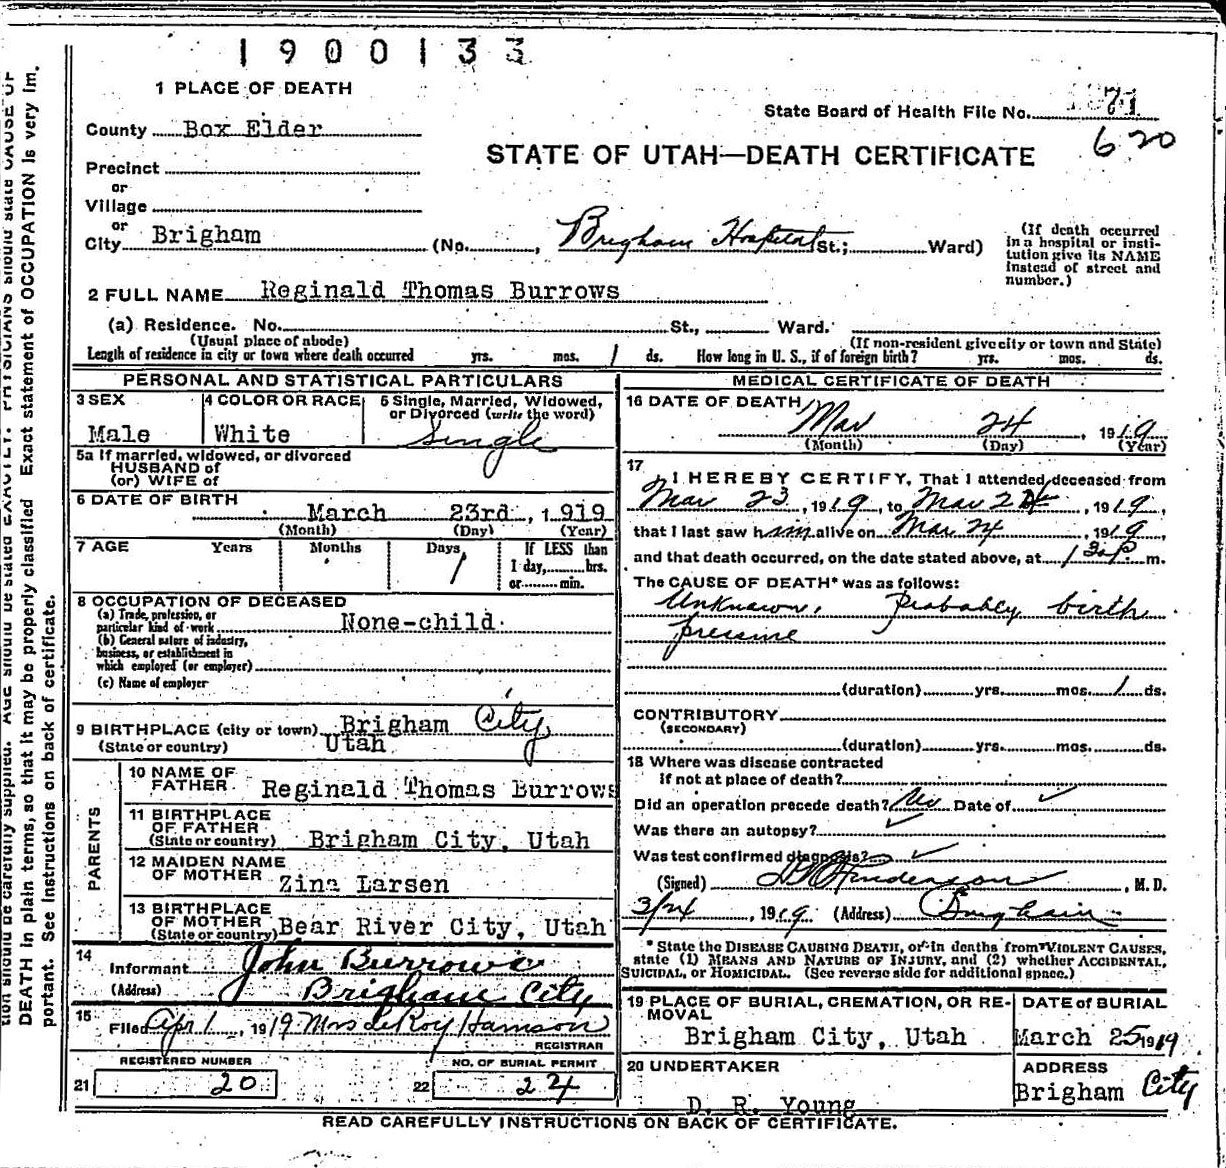 1900133
1 PLACE OF DEATH
State Board of Health File No. 71
620
County Box Elder
STATE OF UTAH—DEATH CERTIFICATE
Precinct
or
Village
or
City Brigham (No. , Brigham Hospital St.; Ward)
(If death occurred in a hospital or insti-
tution give its NAME
instead of street and
number.)
2 FULL NAME Reginald Thomas Burrows
(a) Residence. No. St., Ward.
(Usual place of abode) (If non-resident give city or town and State)
Length of residence in city or town where death occurred yrs. mos. 1 ds. How long in U. S., if of foreign birth? yrs. mos. ds.
PERSONAL AND STATISTICAL PARTICULARS
3 SEX 4 COLOR OR RACE 5 Single, Married, Widowed,
or Divorced (write the word)
Male White Single
5a If married, widowed, or divorced
HUSBAND of
(or) WIFE of
6 DATE OF BIRTH
March 23rd, 1919
(Month) (Day) (Year)
7 AGE Years Months Days If LESS than
1 1 day, hrs.
or min.
8 OCCUPATION OF DECEASED
(a) Trade, profession, or
particular kind of work None-child
(b) General nature of industry,
business, or establishment in
which employed (or employer)
(c) Name of employer
9 BIRTHPLACE (city or town) Brigham City,
(State or country) Utah
PARENTS
10 NAME OF
FATHER Reginald Thomas Burrows
11 BIRTHPLACE
OF FATHER
(State or country) Brigham City, Utah
12 MAIDEN NAME
OF MOTHER Zina Larsen
13 BIRTHPLACE
OF MOTHER
(State or country) Bear River City, Utah
14
Informant John Burrows
(Address) Brigham City
15
Filed Apr 1, 1919 Mrs LeRoy Hamson
REGISTRAR
REGISTERED NUMBER NO. OF BURIAL PERMIT
21 20 22 24
MEDICAL CERTIFICATE OF DEATH
16 DATE OF DEATH
Mar 24, 1919
(Month) (Day) (Year)
17
I HEREBY CERTIFY, That I attended deceased from
Mar 23, 1919, to Mar 24, 1919,
that I last saw him alive on Mar 24, 1919,
and that death occurred, on the date stated above, at 1 30 P. m.
The CAUSE OF DEATH* was as follows:
Unknown. Probably birth
pressure
(duration) yrs. mos. 1 ds.
CONTRIBUTORY
(SECONDARY)
(duration) yrs. mos. ds.
18 Where was disease contracted
if not at place of death?
Did an operation precede death? No Date of ✓
Was there an autopsy? ✓
Was test confirmed diagnosis? ✓
(Signed) Henderson, M. D.
3/24, 1919 (Address) Brigham
* State the DISEASE CAUSING DEATH, or in deaths from VIOLENT CAUSES,
state (1) MEANS AND NATURE OF INJURY, and (2) whether ACCIDENTAL,
SUICIDAL, or HOMICIDAL. (See reverse side for additional space.)
19 PLACE OF BURIAL, CREMATION, OR RE-
MOVAL DATE of BURIAL
Brigham City, Utah March 25 1919
20 UNDERTAKER ADDRESS
D. R. Young Brigham City
READ CAREFULLY INSTRUCTIONS ON BACK OF CERTIFICATE.
tion should be carefully supplied. AGE should be stated EXACTLY. PHYSICIANS should state CAUSE OF
DEATH in plain terms, so that it may be properly classified Exact statement of OCCUPATION is very im.
portant. See instructions on back of certificate.